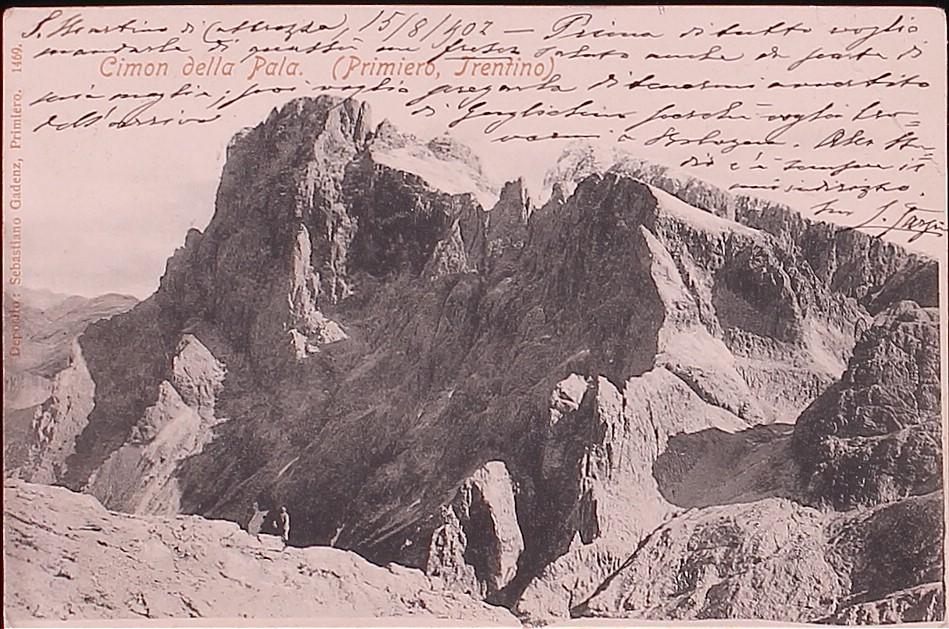 S. Martino di Castrozza, 15/8/902 – Prima di tutto voglio
mandarle di quassù un fresco saluto anche da parte di
mia moglie; poi voglio pregarla di tenermi avvertito
dell'arrivo di Guglielmo perchè voglio tro-
varmi a Bologna.
è sempre il
mio indirizzo.
Suo
Cimon della Pala. (Primiero, Trentino)
Deposito: Sebastiano Gadenz, Primiero. 1469.